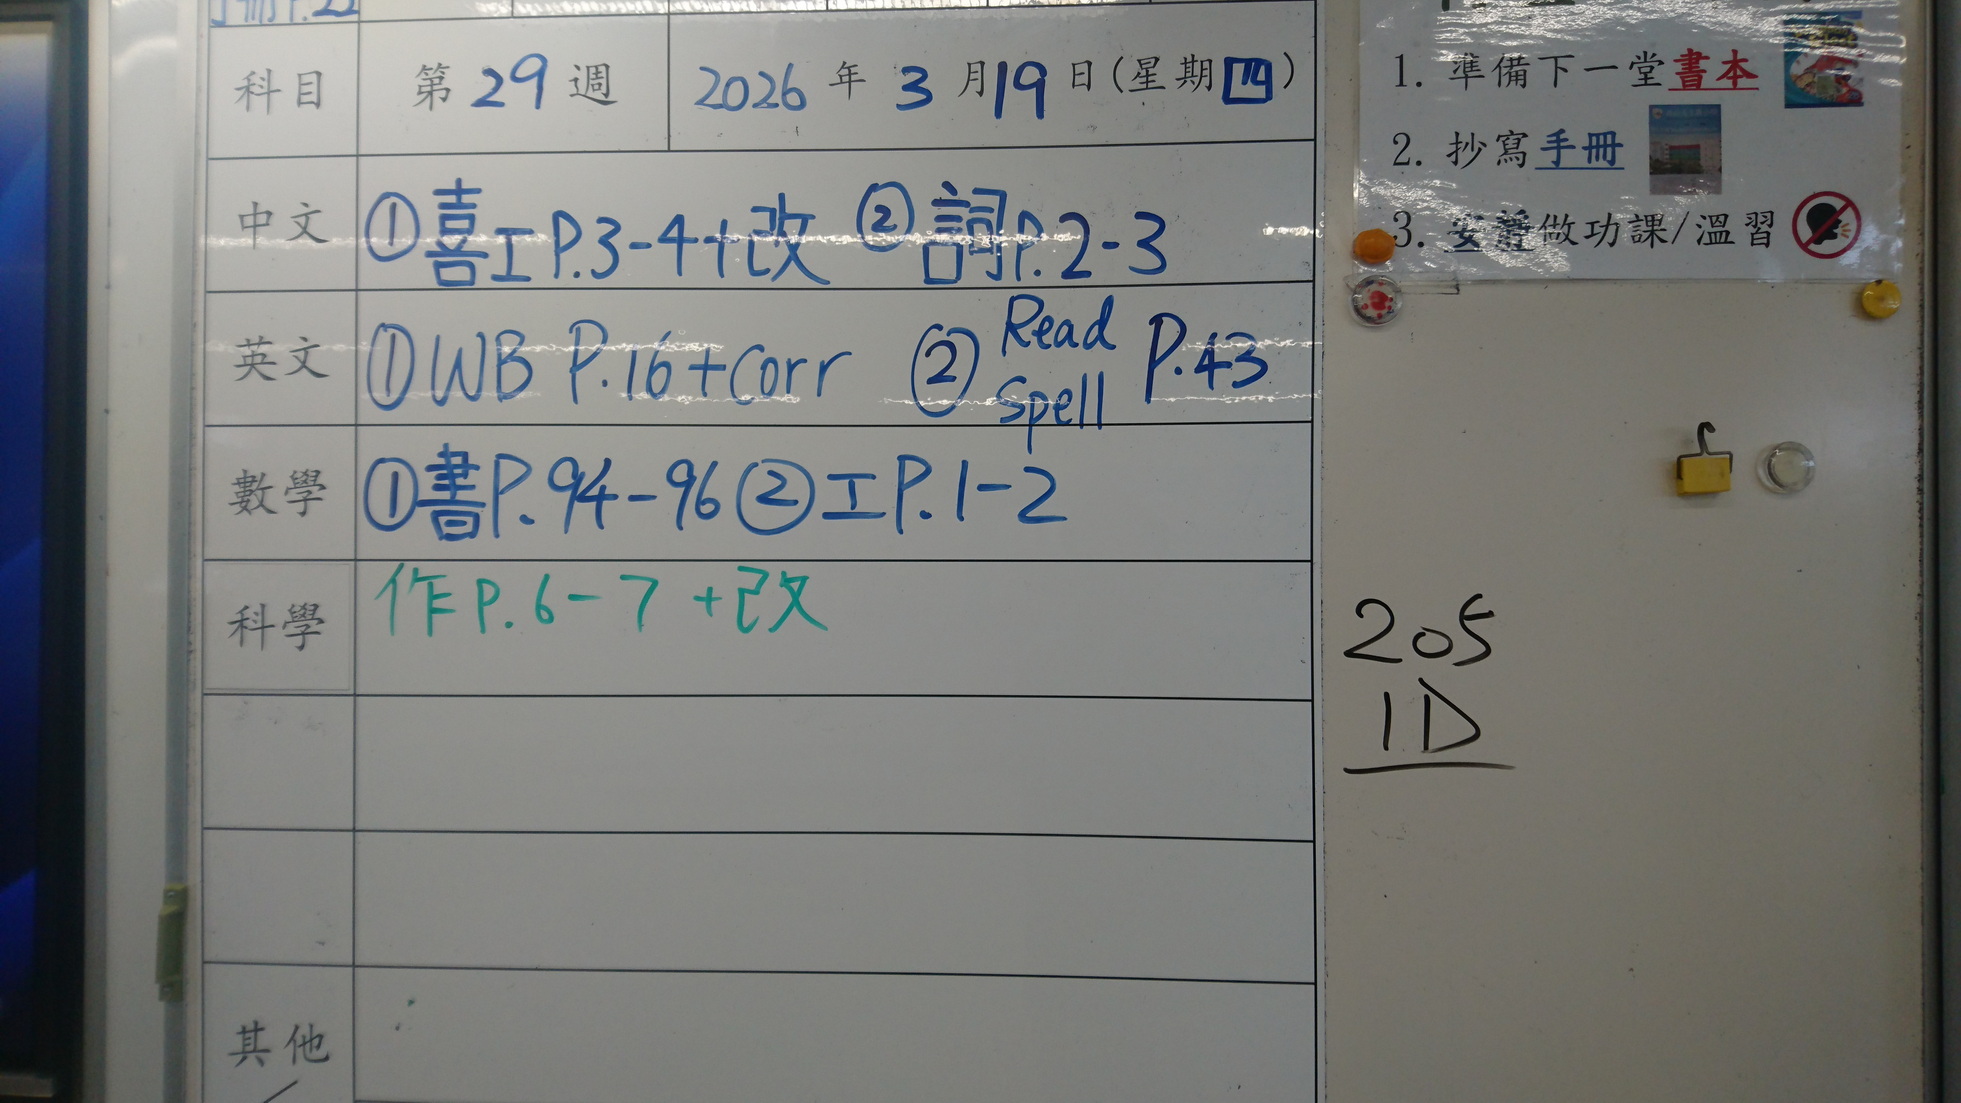 手冊P.22
科目 第29週 2026年3月19日(星期四)
中文 ①喜工P.3-4+改 ②詞P.2-3
英文 ①WB P.16+corr ② Read Spell P.43
數學 ①書P.94-96 ②工P.1-2
科學 作P.6-7 +改
其他
1. 準備下一堂書本
2. 抄寫手冊
3. 安靜做功課/溫習
205
1D